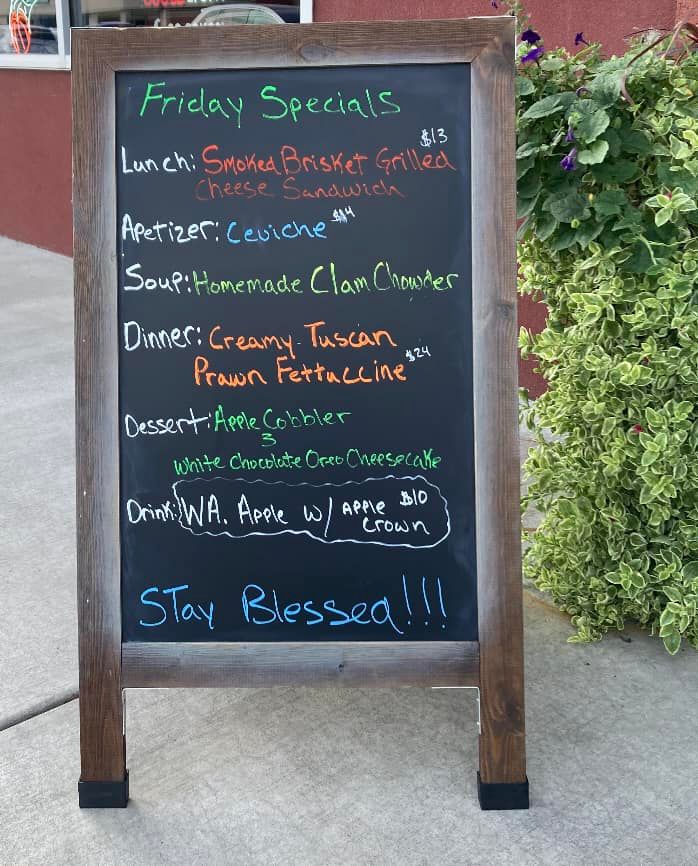 Friday Specials
$13
Lunch: Smoked Brisket Grilled
Cheese Sandwich
Apetizer: Ceviche $14
Soup: Homemade Clam Chowder
Dinner: Creamy Tuscan
Prawn Fettuccine $24
Dessert: Apple Cobbler
White Chocolate Oreo Cheesecake
Drink: WA. Apple w/ Apple $10
Crown
Stay Blessed!!!